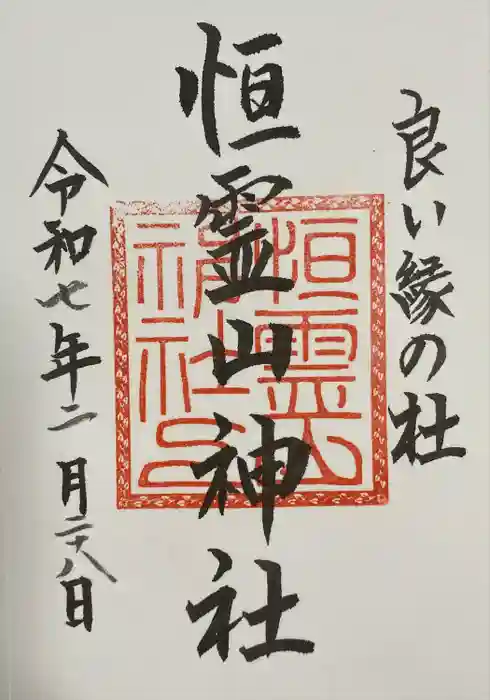 良い縁の杜
恒霊山神社
令和七年二月二十八日